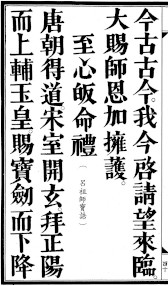 今古古今。我今啓請。望來臨。
大賜師恩加擁護。
至心皈命禮
（呂祖師寶誥）
唐朝得道。宋室開玄。拜正陽
而上輔玉皇。賜寶劍而下降